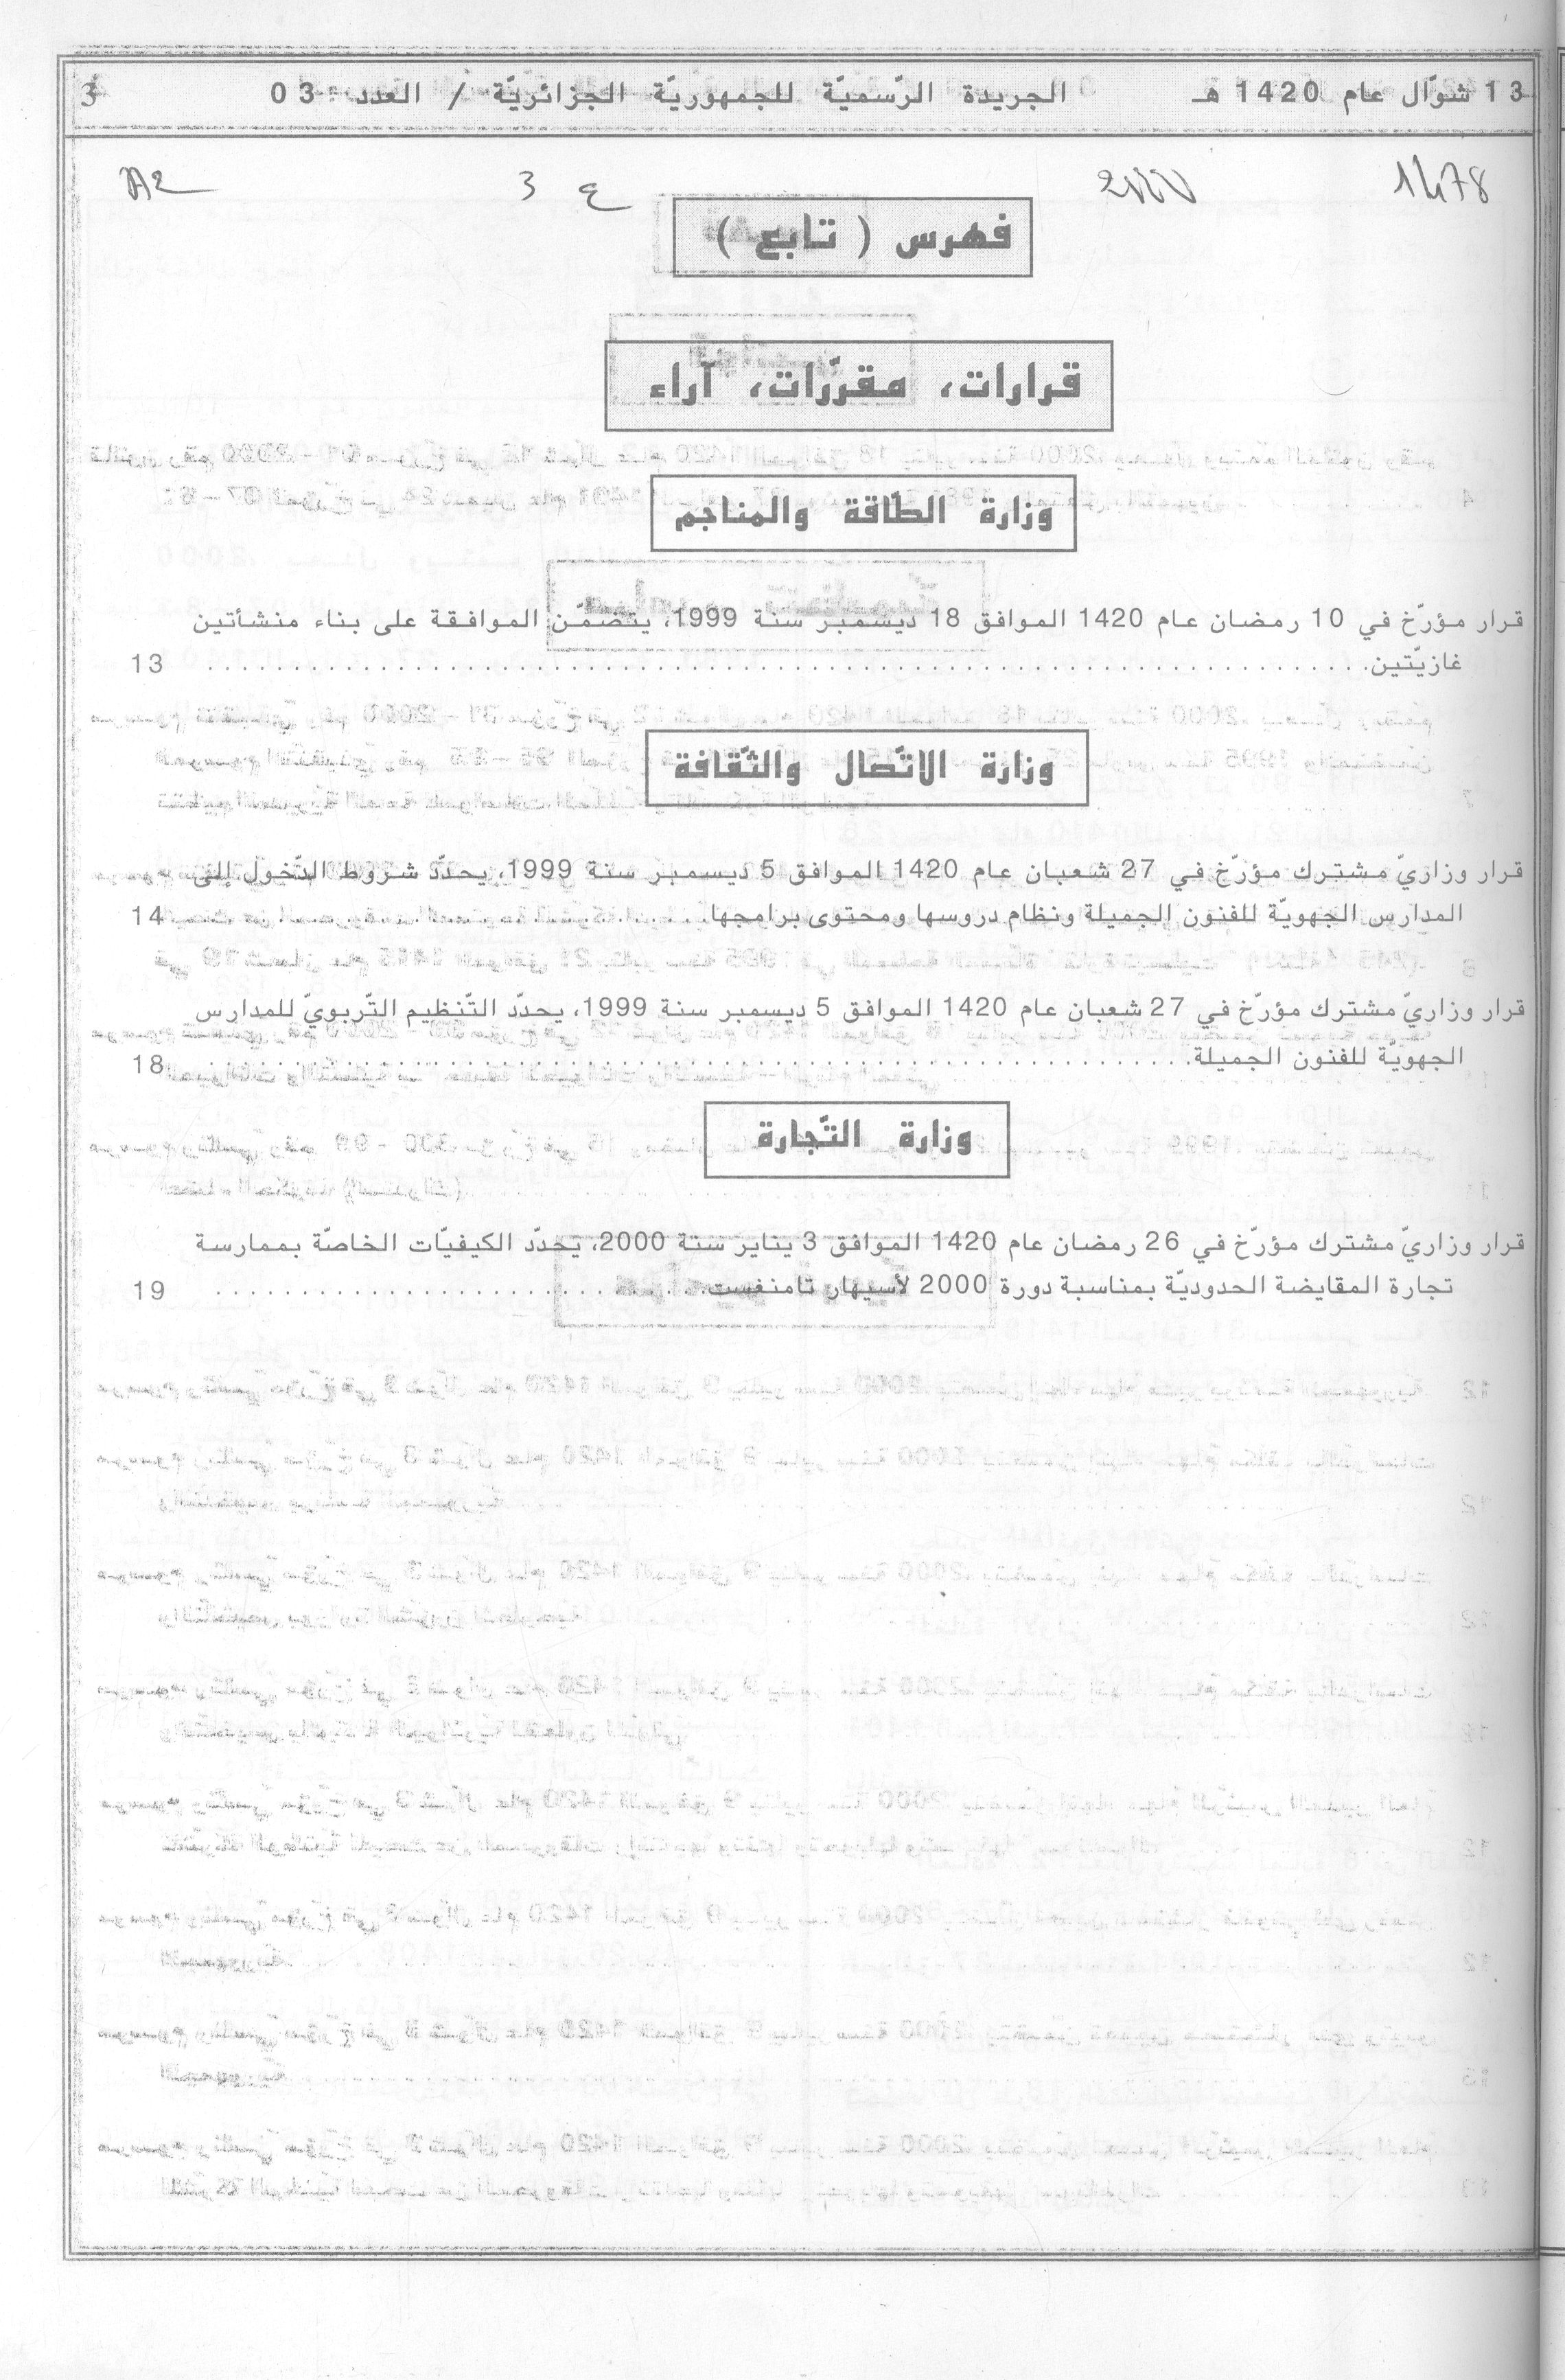 13 شوّال عام 1420 هـ الجريدة الرّسميّة للجمهوريّة الجزائريّة / العدد 03 3
1478 2000 ع 3 A2
فهرس ( تابع )
قرارات، مقرّرات، آراء
وزارة الطّاقة والمناجم
قرار مؤرّخ في 10 رمضان عام 1420 الموافق 18 ديسمبر سنة 1999، يتضمّن الموافقة على بناء منشأتين
غازيّتين. . . . . . . . . . . . . . . . . . . . 13
وزارة الاتّصال والثّقافة
قرار وزاريّ مشترك مؤرّخ في 27 شعبان عام 1420 الموافق 5 ديسمبر سنة 1999، يحدّد شروط الدّخول إلى
المدارس الجهويّة للفنون الجميلة ونظام دروسها ومحتوى برامجها. . . . 14
قرار وزاريّ مشترك مؤرّخ في 27 شعبان عام 1420 الموافق 5 ديسمبر سنة 1999، يحدّد التّنظيم التّربويّ للمدارس
الجهويّة للفنون الجميلة. . . . . . . . . . . . . . . . . . . . 18
وزارة التّجارة
قرار وزاريّ مشترك مؤرّخ في 26 رمضان عام 1420 الموافق 3 يناير سنة 2000، يحدّد الكيفيّات الخاصّة بممارسة
تجارة المقايضة الحدوديّة بمناسبة دورة 2000 لأسيهار تامنغست. . . . . . . . . . . . . . . . . . . . 19